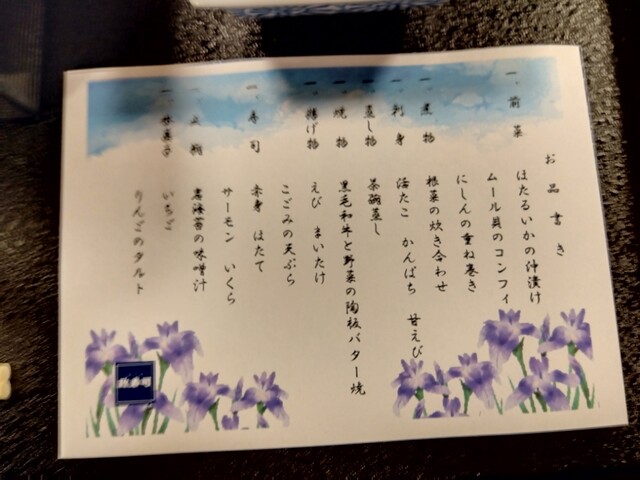 お品書き
一、前菜 ほたるいかの沖漬け
ムール貝のコンフィ
にしんの重ね巻き
一、煮物 根菜の炊き合わせ
一、刺身 活たこ かんぱち 甘えび
一、蒸し物 茶碗蒸し
一、焼物 黒毛和牛と野菜の陶板バター焼
一、揚げ物 えび まいたけ
こごみの天ぷら
一、寿司 赤身 ほたて
サーモン いくら
岩海苔の味噌汁
いちご
りんごのタルト